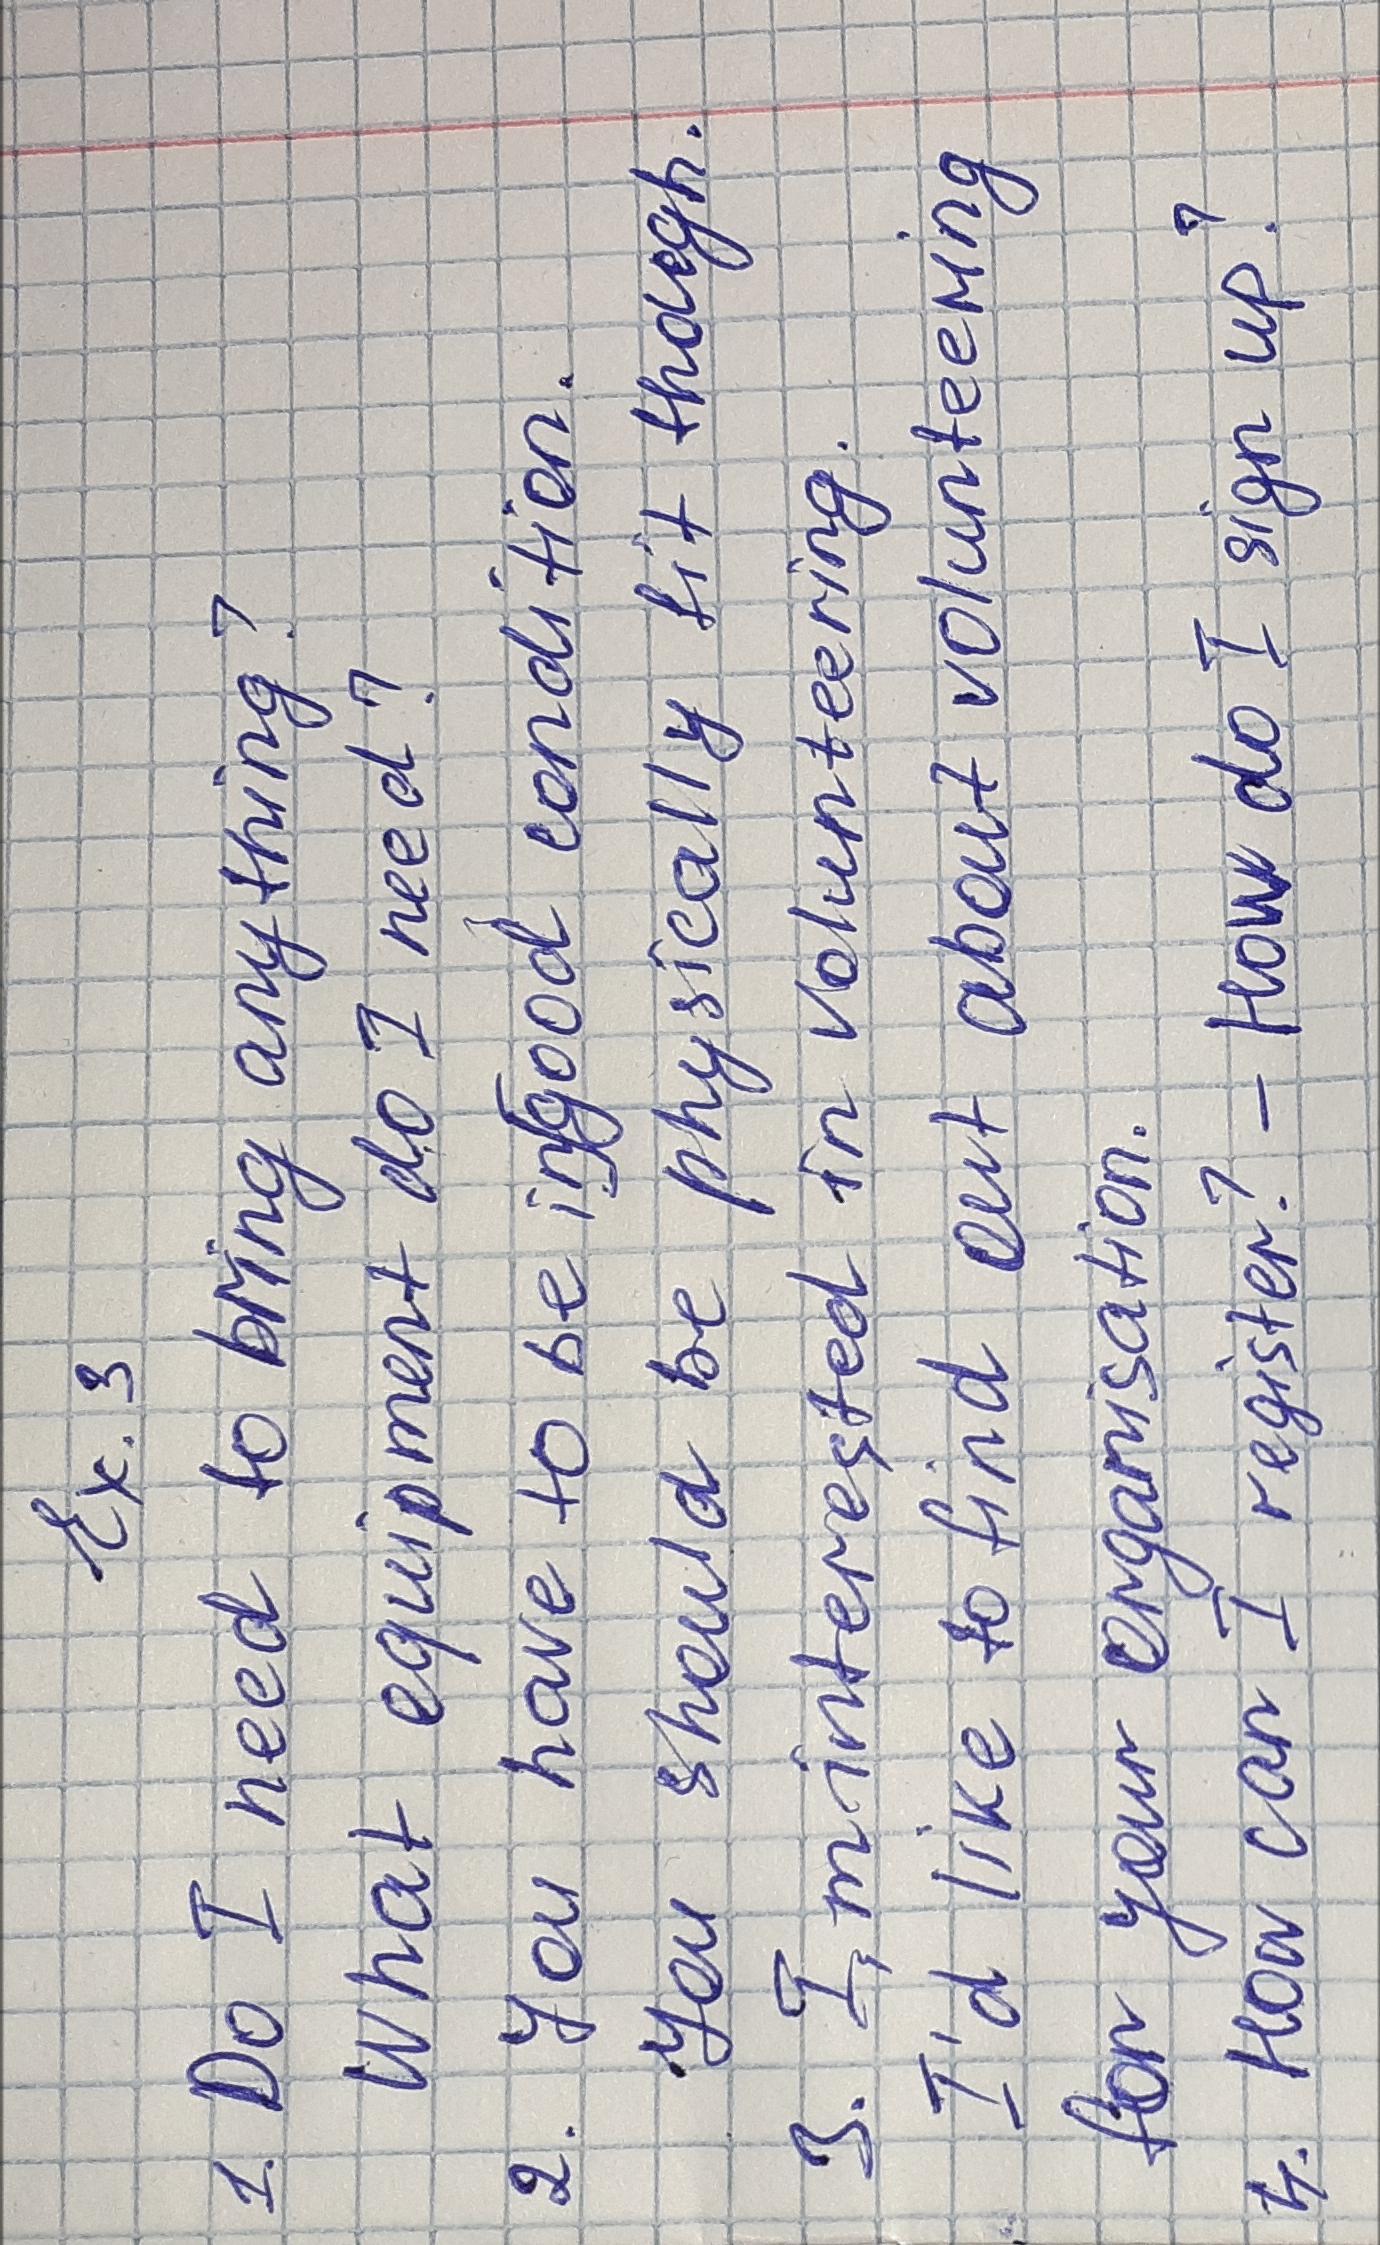 Ex. 3
1. Do I need to bring anything?
What equipment do I need?
2. You have to be in good condition.
You should be physically fit though.
3. I,m interested in volunteering.
I'd like to find out about volunteering
for your organisation.
4. How can I register? – How do I sign up?